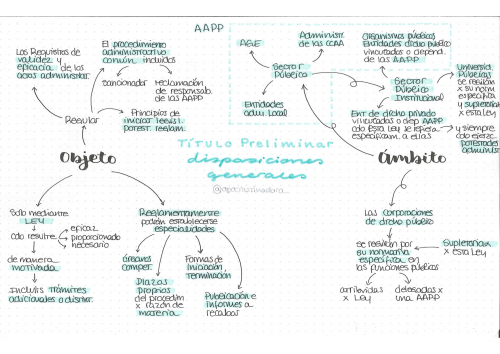 AAPP
Los Requisitos de
validez y
eficacia de los
actos administrat.
El procedimiento
administrativo
común incluidos
sancionador
reclamación
de responsab.
de las AAPP
Regular
Principios de
iniciat. legisl.
potest. reglam.
AGE
Administr
de las CCAA
Sector
Público
Entidades
adm. Local
Organismos públicos
Entidades dcho público
vinculados o depend.
de las AAPP
Sector
Público
Institucional
Universid.
Públicas
se regirán
x su norm
específica
y supletoria
x esta ley
Ent de dcho privado
vinculados o dep AAPP
cdo esta Ley se refiera
específicam. a ellas
y siempre
cdo ejerzc.
potestades
administ.
TÍTULO Preliminar
disposiciones
generales
Objeto
ámbito
Solo mediante
LEY
cdo resulte
eficaz
proporcionado
necesario
de manera
motivada
Incluirs trámites
adicionales o distint.
Reglamentariamente
podrán establecerse
especialidades
órganos
compet.
Plazos
propios
del procedim
x razón de
materia
Formas de
Iniciación
Terminación
Publicación e
informes a
recabar
Las corporaciones
de dcho público
se regirán por
su normativa
específica en
las funciones públicas
Supletoria
x esta Ley
atribuidas
x Ley
delegadas x
una AAPP